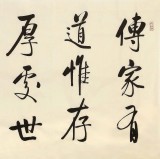 傳家有
道惟存
厚處世